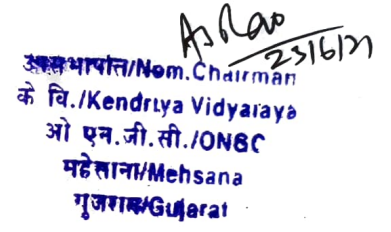 23/6/21
/Nom.Chairman
के वि./Kendriya Vidyalaya
ओ एन.जी.सी./ONGC
महेसाना/Mehsana
गुजरात/Gujarat